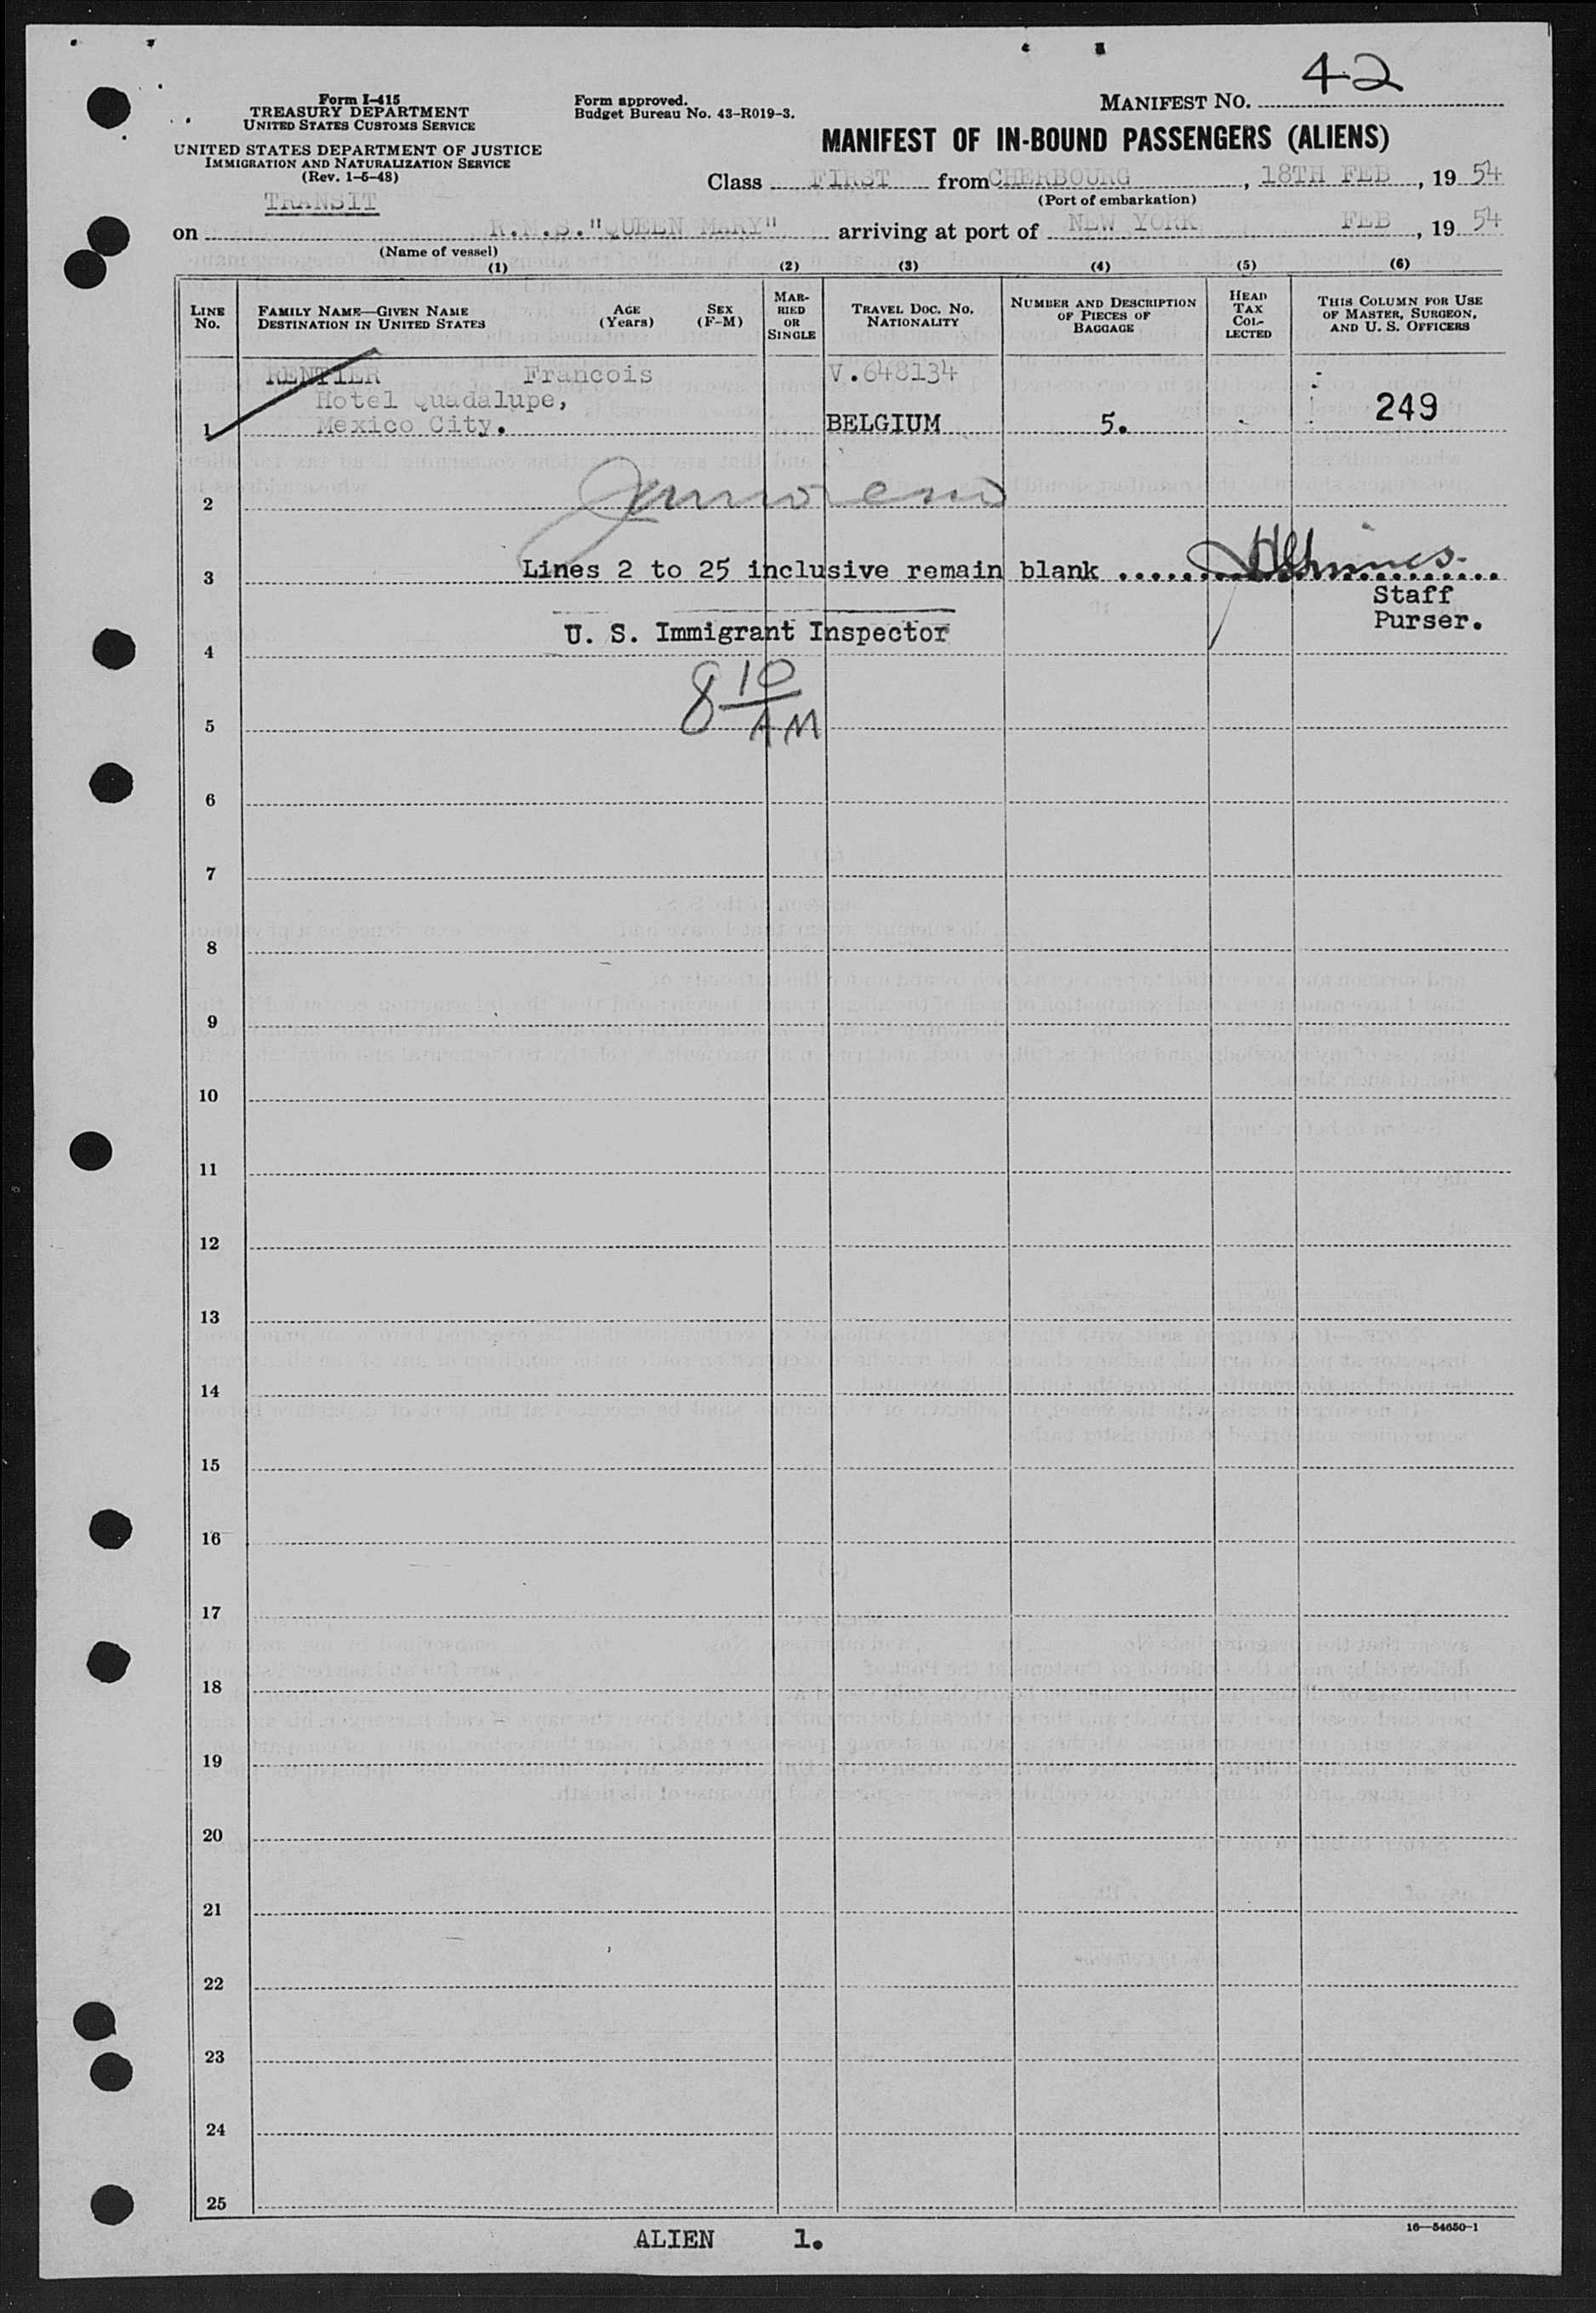 42
Form I-415
TREASURY DEPARTMENT
UNITED STATES CUSTOMS SERVICE
UNITED STATES DEPARTMENT OF JUSTICE
IMMIGRATION AND NATURALIZATION SERVICE
(Rev. 1-5-48)
Form approved.
Budget Bureau No. 43-R019-3.
MANIFEST NO.
MANIFEST OF IN-BOUND PASSENGERS (ALIENS)
Class FIRST from CHERBOURG, 18TH FEB, 19 54
(Port of embarkation)
TRANSIT
on R.M.S."QUEEN MARY" arriving at port of NEW YORK FEB, 19 54
(Name of vessel)
(1) (2) (3) (4) (5) (6)
LINE NO.
FAMILY NAME—GIVEN NAME
DESTINATION IN UNITED STATES
AGE (Years)
SEX (F-M)
MARRIED OR SINGLE
TRAVEL DOC. NO. NATIONALITY
NUMBER AND DESCRIPTION OF PIECES OF BAGGAGE
HEAD TAX COLLECTED
THIS COLUMN FOR USE OF MASTER, SURGEON, AND U. S. OFFICERS
RENTIER Francois V.648134
Hotel Quadalupe,
1 Mexico City. BELGIUM 5. 249
2
3 Lines 2 to 25 inclusive remain blank
Staff
Purser.
U. S. Immigrant Inspector
4
8 10 AM
5
6
7
8
9
10
11
12
13
14
15
16
17
18
19
20
21
22
23
24
25
ALIEN 1.
16—54650-1